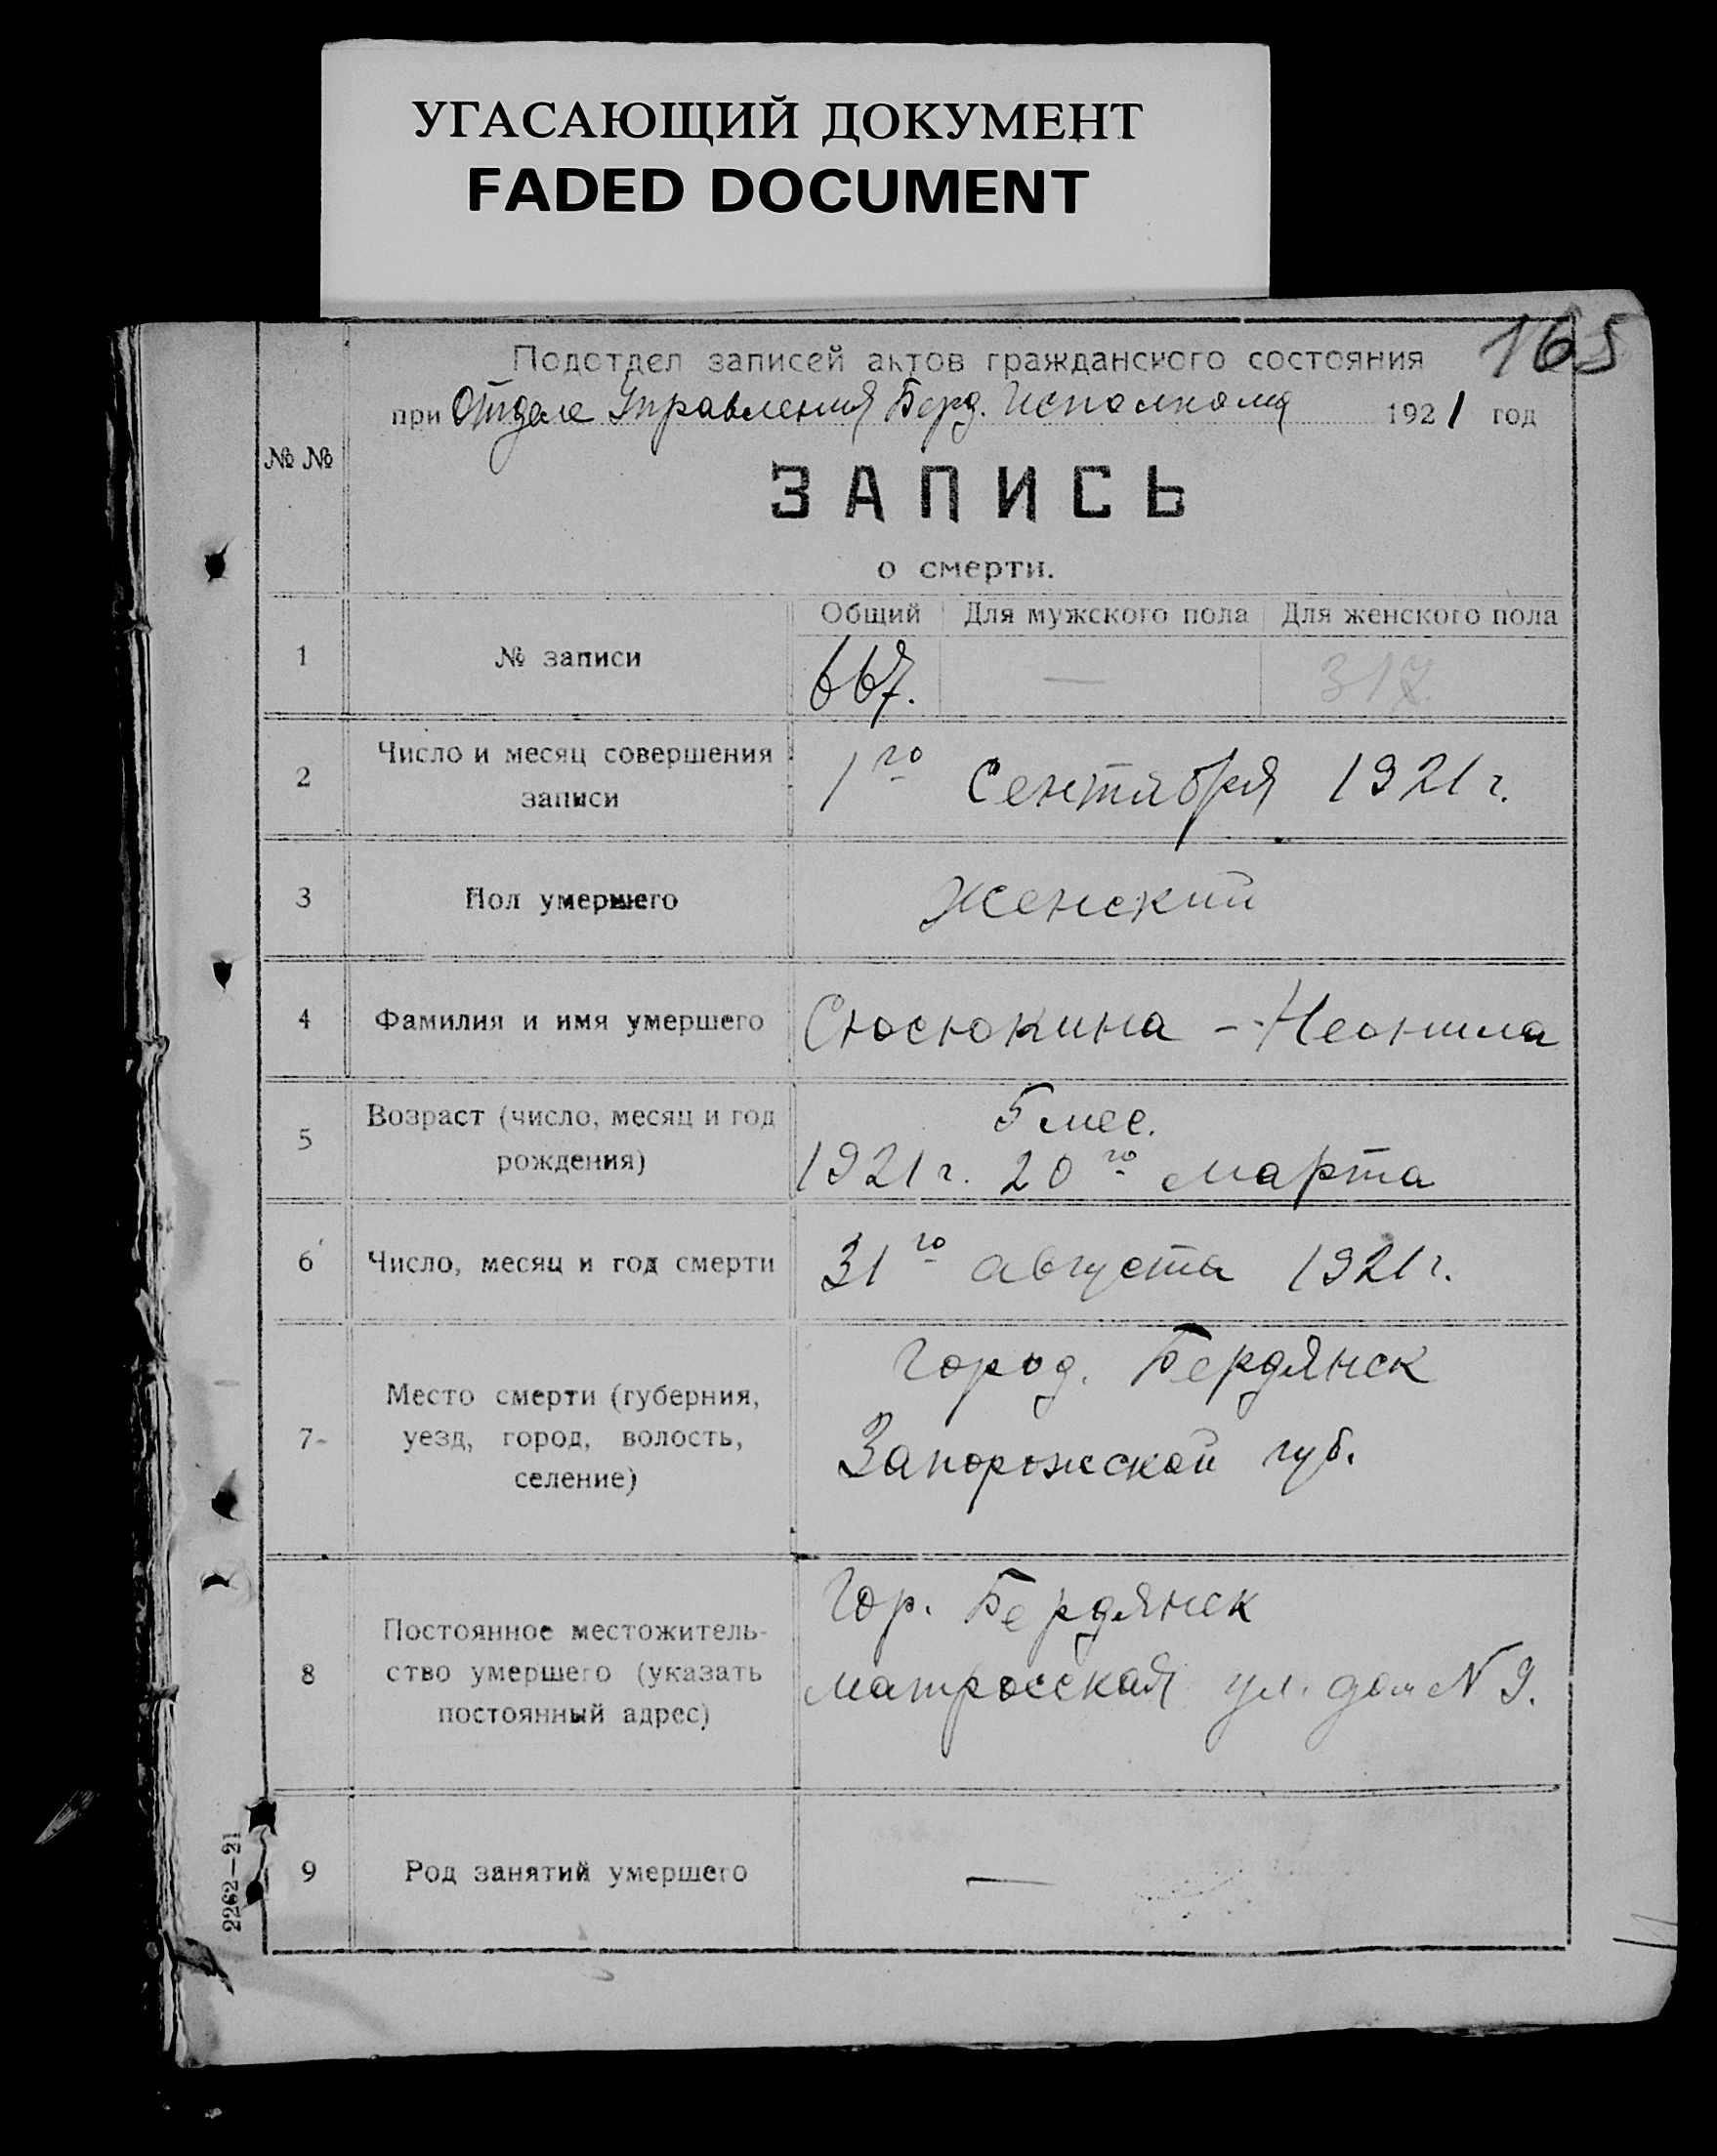 УГАСАЮЩИЙ ДОКУМЕНТ
FADED DOCUMENT
165
Подотдел записей актов гражданского состояния
при Отделе Управления Берд. Исполкома 1921 год
№ №
ЗАПИСЬ
о смерти.
Общий Для мужского пола Для женского пола
1 № записи 667. — 317.
2 Число и месяц совершения
записи
1го Сентября 1921 г.
3 Пол умершего Женский
4 Фамилия и имя умершего Сюсюкина - Неонила
5 Возраст (число, месяц и год
рождения)
5 мес.
1921 г. 20го марта
6 Число, месяц и год смерти 31го августа 1921 г.
7 Место смерти (губерния,
уезд, город, волость,
селение)
Город. Бердянск
Запорожской губ.
8 Постоянное местожитель-
ство умершего (указать
постоянный адрес)
Гор. Бердянск
матросская ул. дом № 9.
9 Род занятий умершего —
2262—21